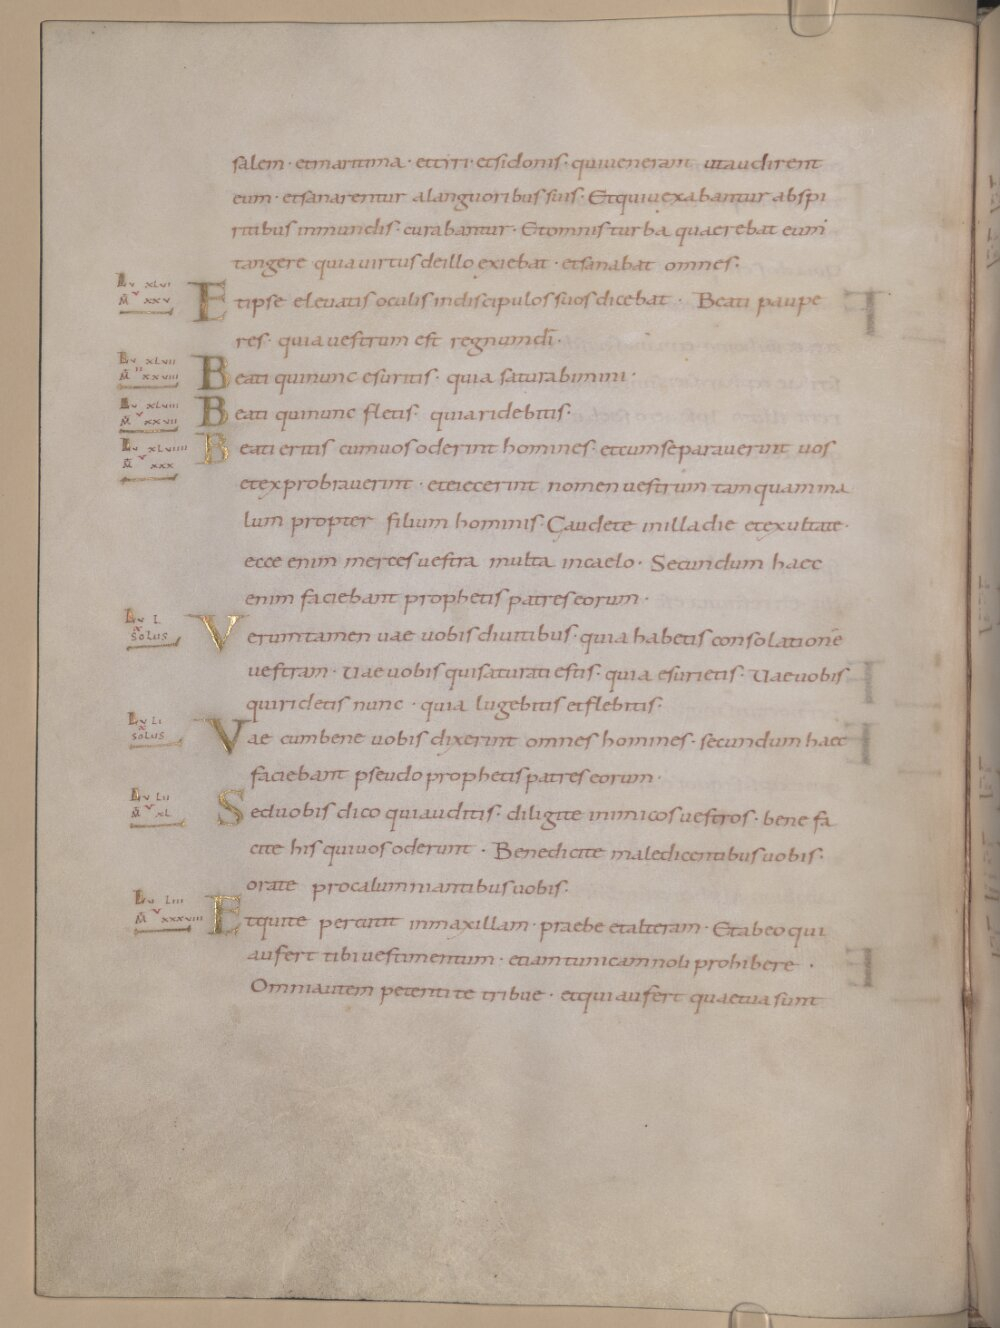 salem · et maritima · et tiri · et sidonis · qui uenerant ut audirent
eum · et sanarentur a languoribus suis · Et qui uexabantur ab spi
ritibus inmundis · curabantur · Et omnis turba quaerebat eum
tangere quia uirtus de illo exiebat · et sanabat omnes ·
Lu xlvi
M xxv
Et ipse eleuatis oculis in discipulos suos dicebat · Beati paupe
res · quia uestrum est regnum dī ·
Lu xlvii
M xxviii
Beati qui nunc esuritis · quia saturabimini ·
Lu xlviii
M xxvii
Beati qui nunc fletis · quia ridebitis ·
Lu xlviiii
M xxx
Beati eritis cum uos oderint homines · et cum separauerint uos
et exprobrauerint · et eiecerint nomen uestrum tamquam ma
lum propter filium hominis · Gaudete in illa die et exultate ·
ecce enim merces uestra multa in caelo · Secundum haec
enim faciebant prophetis patres eorum ·
Lu L
solus
Veruntamen uae uobis diuitibus · quia habetis consolationē
uestram · Uae uobis qui saturati estis · quia esurietis · Uae uobis
qui ridetis nunc · quia lugebitis et flebitis ·
Lu Li
solus
Vae cum bene uobis dixerint omnes homines · secundum haec
faciebant pseudo prophetis patres eorum ·
Lu Lii
M xL
Sed uobis dico qui auditis · diligite inimicos uestros · bene fa
cite his qui uos oderunt · Benedicite maledicentibus uobis ·
orate pro calumniantibus uobis ·
Lu Liii
M xxxviii
Et qui te percutit in maxillam · praebe et alteram · Et ab eo qui
aufert tibi uestimentum · etiam tunicam noli prohibere ·
Omni autem petenti te tribue · et qui aufert quae tua sunt